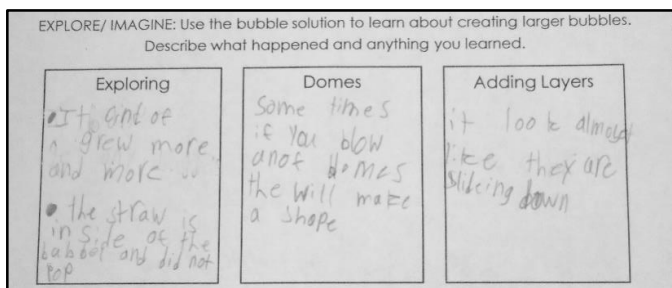 EXPLORE/ IMAGINE: Use the bubble solution to learn about creating larger bubbles.
Describe what happened and anything you learned.
Exploring
•It and of
grew more
and more
• the straw is
in side of the
babbol and did not
pop
Domes
Some times
if you blow
anof domes
the will make
a shope
Adding Layers
it look almost
like they are
sliding down